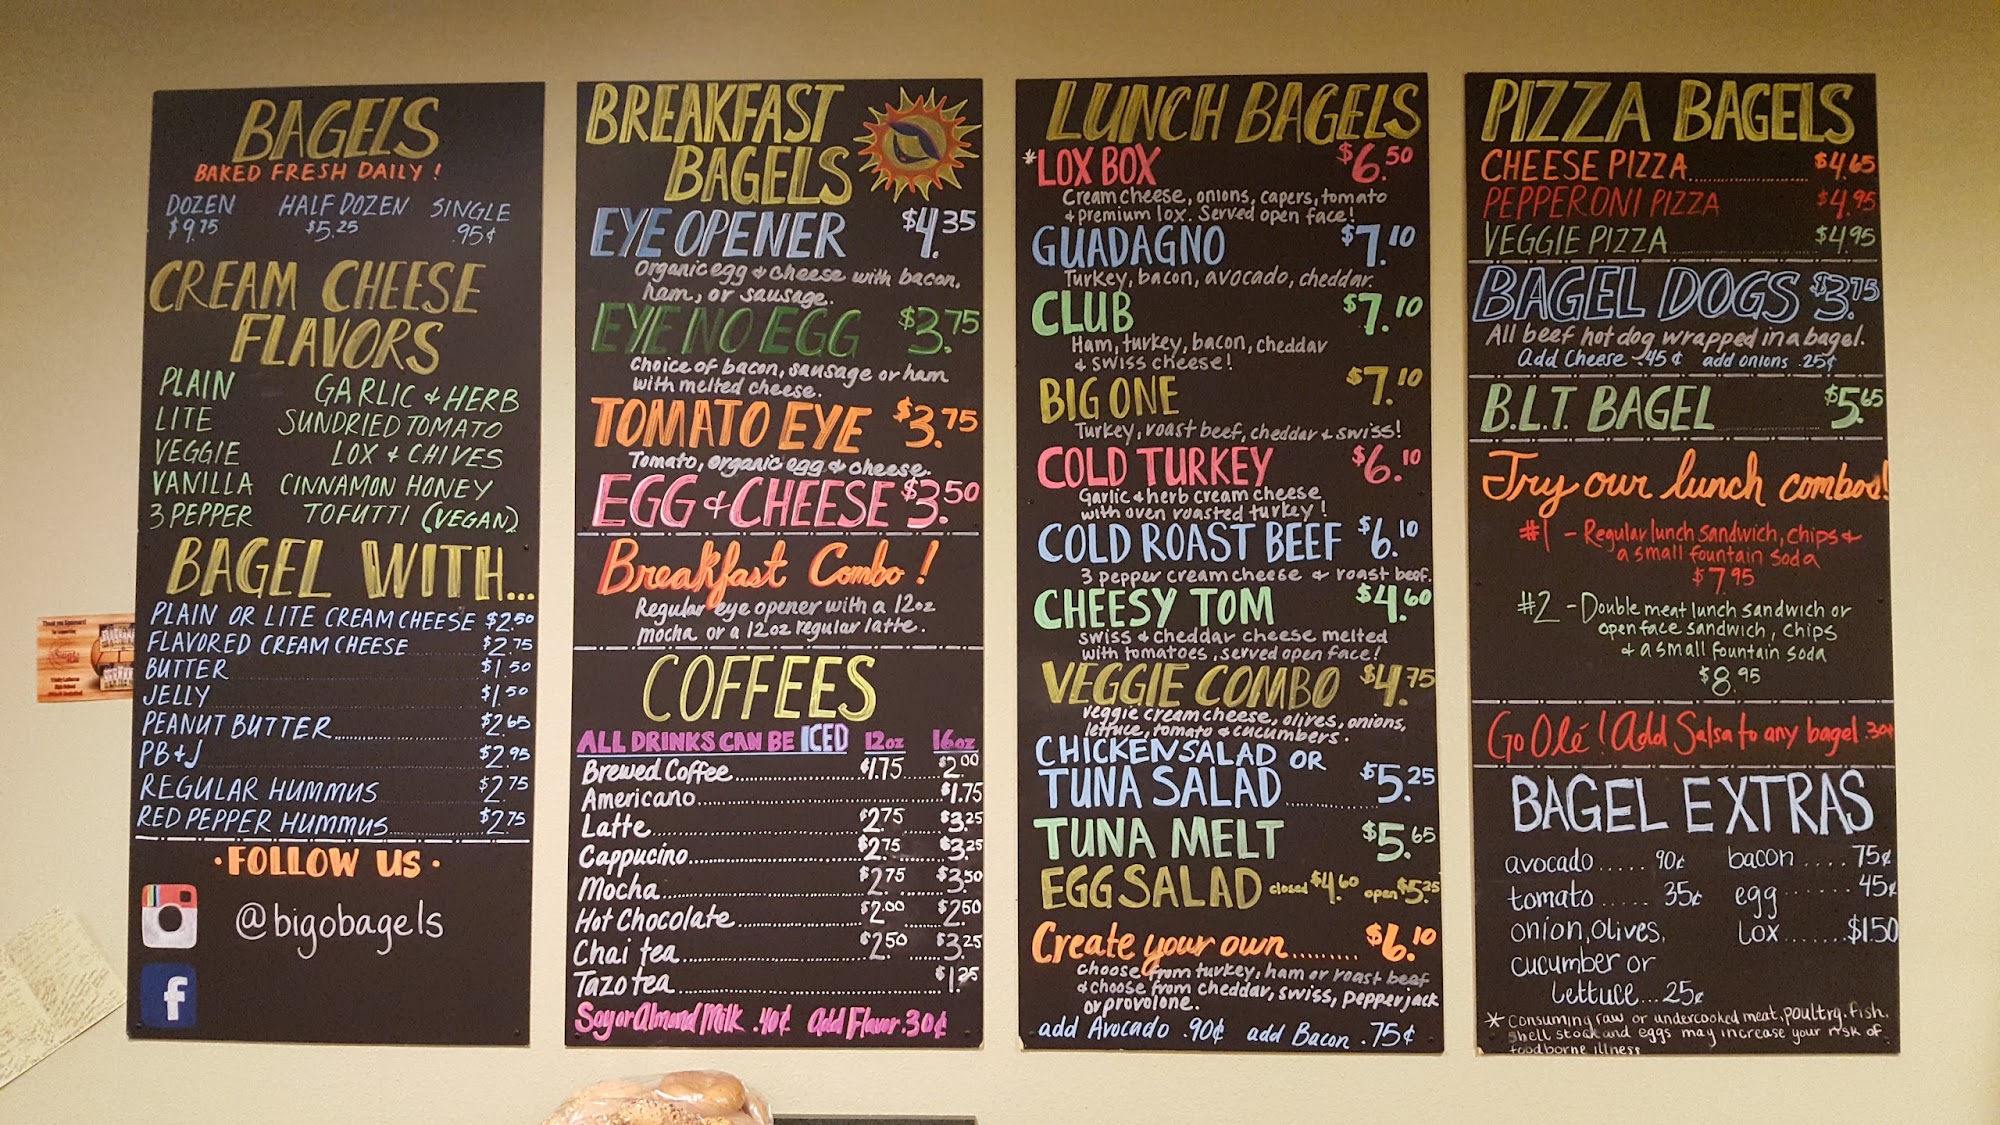 BAGELS
BAKED FRESH DAILY!
DOZEN HALF DOZEN SINGLE
$9.75 $5.25 .95¢
CREAM CHEESE
FLAVORS
PLAIN GARLIC & HERB
LITE SUNDRIED TOMATO
VEGGIE LOX & CHIVES
VANILLA CINNAMON HONEY
3 PEPPER TOFUTTI (VEGAN)
BAGEL WITH...
PLAIN OR LITE CREAM CHEESE $2.50
FLAVORED CREAM CHEESE $2.75
BUTTER $1.50
JELLY $1.50
PEANUT BUTTER $2.65
PB & J $2.95
REGULAR HUMMUS $2.75
RED PEPPER HUMMUS $2.75
• FOLLOW US •
@bigobagels
f
BREAKFAST
BAGELS
EYE OPENER $4.35
Organic egg & cheese with bacon,
ham, or sausage.
EYE NO EGG $3.75
Choice of bacon, sausage or ham
with melted cheese.
TOMATO EYE $3.75
Tomato, organic egg & cheese.
EGG & CHEESE $3.50
Breakfast Combo!
Regular eye opener with a 12oz
mocha or a 12oz regular latte.
COFFEES
ALL DRINKS CAN BE ICED 12oz 16oz
Brewed Coffee $1.75 $2.00
Americano $1.75
Latte $2.75 $3.25
Cappucino $2.75 $3.25
Mocha $2.75 $3.50
Hot Chocolate $2.00 $2.50
Chai tea $2.50 $3.25
Tazo tea $1.25
Soy or Almond Milk .40¢ Add Flavor .30¢
LUNCH BAGELS
*LOX BOX $6.50
Cream cheese, onions, capers, tomato
& premium lox. Served open face!
GUADAGNO $7.10
Turkey, bacon, avocado, cheddar.
CLUB $7.10
Ham, turkey, bacon, cheddar
& swiss cheese!
BIG ONE $7.10
Turkey, roast beef, cheddar & swiss!
COLD TURKEY $6.10
Garlic & herb cream cheese
with oven roasted turkey!
COLD ROAST BEEF $6.10
3 pepper cream cheese & roast beef.
CHEESY TOM $4.60
swiss & cheddar cheese melted
with tomatoes, served open face!
VEGGIE COMBO $4.75
veggie cream cheese, olives, onions,
lettuce, tomato & cucumbers.
CHICKEN SALAD OR
TUNA SALAD $5.25
TUNA MELT $5.65
EGG SALAD closed $4.60 open $5.25
Create your own $6.10
choose from turkey, ham or roast beef
& choose from cheddar, swiss, pepperjack
or provolone.
add Avocado .90¢ add Bacon .75¢
PIZZA BAGELS
CHEESE PIZZA $4.65
PEPPERONI PIZZA $4.95
VEGGIE PIZZA $4.95
BAGEL DOGS $3.75
All beef hot dog wrapped in a bagel.
add Cheese .45¢ add onions .25¢
B.L.T. BAGEL $5.65
Try our lunch combos!
#1 - Regular lunch sandwich, chips &
a small fountain soda
$7.95
#2 - Double meat lunch sandwich or
open face sandwich, chips
& a small fountain soda
$8.95
Go Olé! Add Salsa to any bagel .30¢
BAGEL EXTRAS
avocado ..... 90¢ bacon .... 75¢
tomato ..... 35¢ egg ...... 45¢
onion, olives, lox ....... $1.50
cucumber or
lettuce... 25¢
* Consuming raw or undercooked meat, poultry, fish,
shell stock and eggs may increase your risk of
foodborne illness